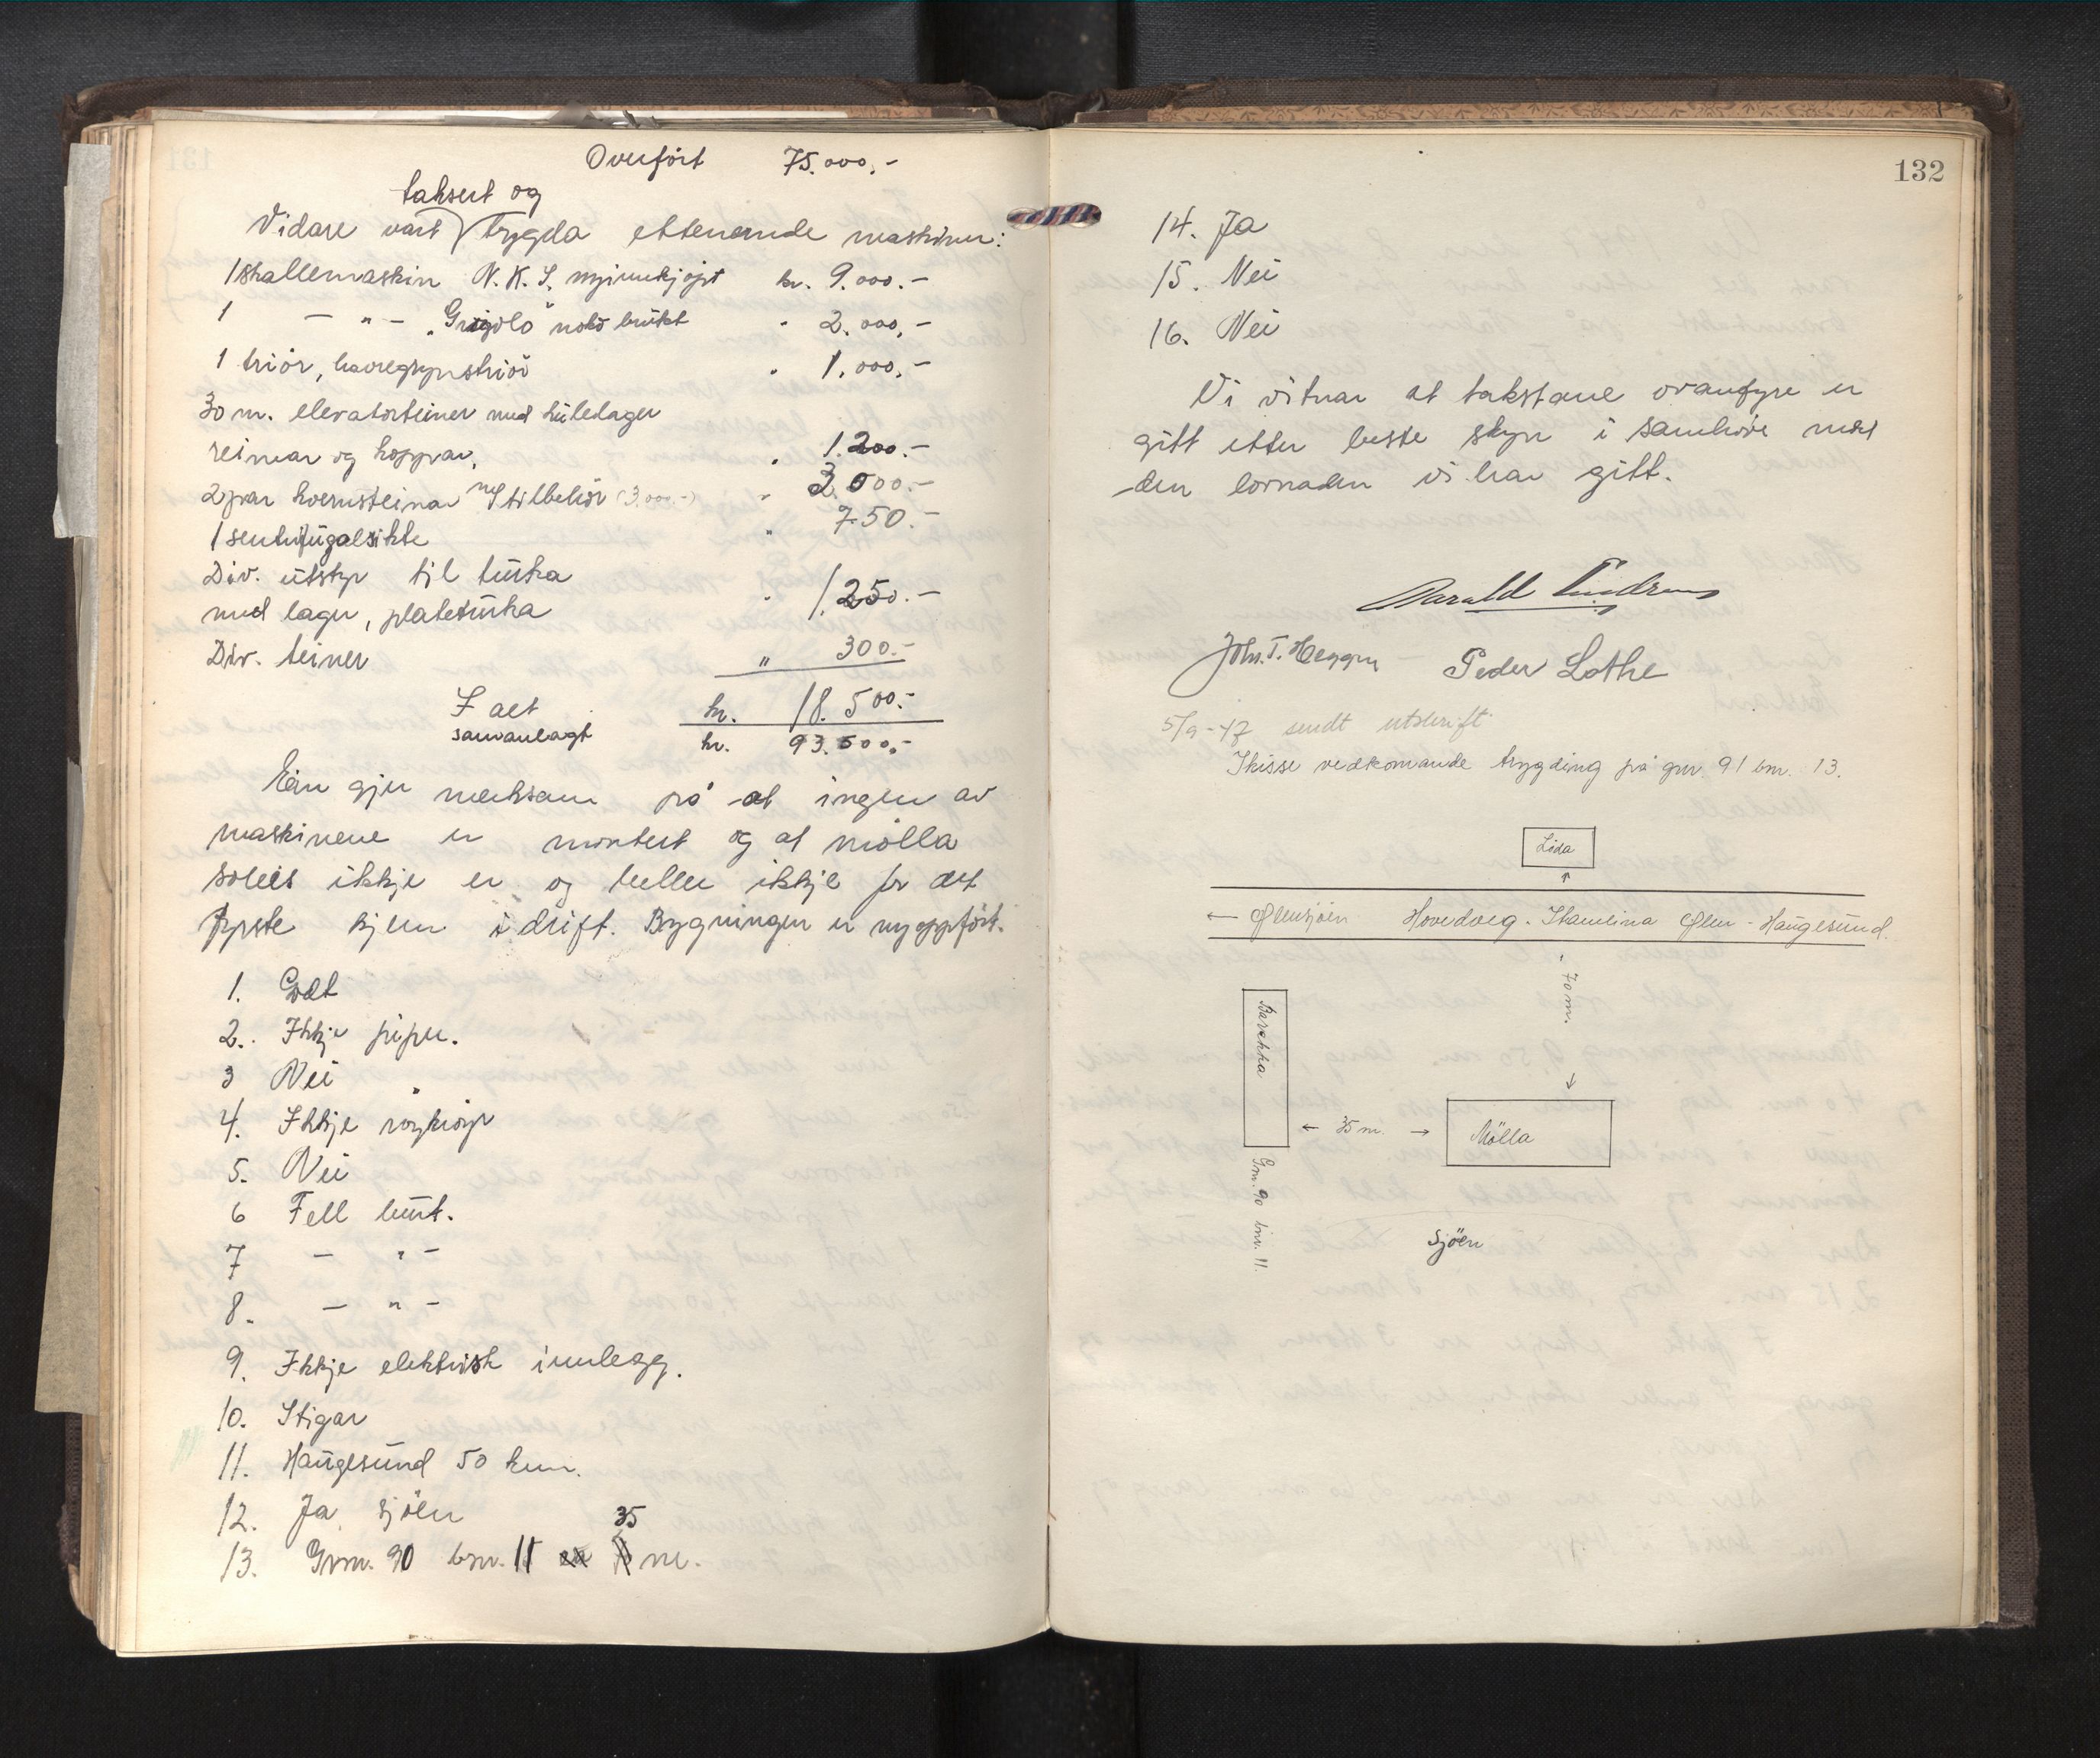 Overført 75.000,-
taksert og
Vidare vart trygda ettenemnde maskiner:
1 skallemaskin N.K.S. nyinnkjøpt kr. 9.000.-
1 - " - "Grigolo" noko brukt " 2.000,-
1 triør, havregrynstriør " 1.000,-
30 m. elevatorteiner med kulelager
reimar og koppar, " 1.200.-
2 par kvernsteinar m/tilbehør (3.000.-) " 3.000.-
1 sentrifugalsikte " 750.-
Div. utstyr til turka
med lager, plateturka " 1.250.-
Div. teiner " 300.-
I alt kr. 18.500.-
samanlagt kr. 93.500,-
Ein gjer merksam på at ingen av
maskinene er montert og at mølla
soleis ikkje er og heller ikkje for det
fyrste kjem i drift. Bygningen er nyoppført.
1. Godt
2. Ikkje pipe.
3 Nei
4. Ikkje røykrøyr
5. Nei
6 Fell burt.
7 - " -
8. - " -
9. Ikkje elektrisk innlegg.
10. Stigar
11. Haugesund 50 km.
12. Ja, sjøen
35
13. Gnr. 90 bnr. 11 m.
132
14. Ja
15. Nei
16. Nei
Vi vitnar at takstane ovanfyre er
gitt etter beste skyn i samhøve med
den lovnaden vi har gitt.
Harald
Joh. T. Heggen Peder Lothe
5/9-47 sendt utskrift
Skisse vedkomande trygding på gnr. 91 bnr. 13.
Lida
← Ølensjøen Hovedveg. Stamlina Ølen - Haugesund.
70 m.
Barakka
← 35 m. →
Mølla
Gnr. 90 bnr. 11.
Sjøen